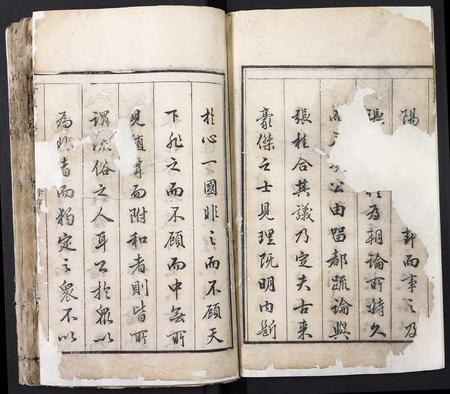 陽封而事之乃
張為朝論所持久
公由留都疏論與
張桂合其議乃定夫古來
豪傑之士見理既明内斷
於心一國非之而不顧天
下非之而不顧而中無所
見隨時而附和者則皆所
謂流俗之人耳公於眾以
為非者而獨定之眾不以